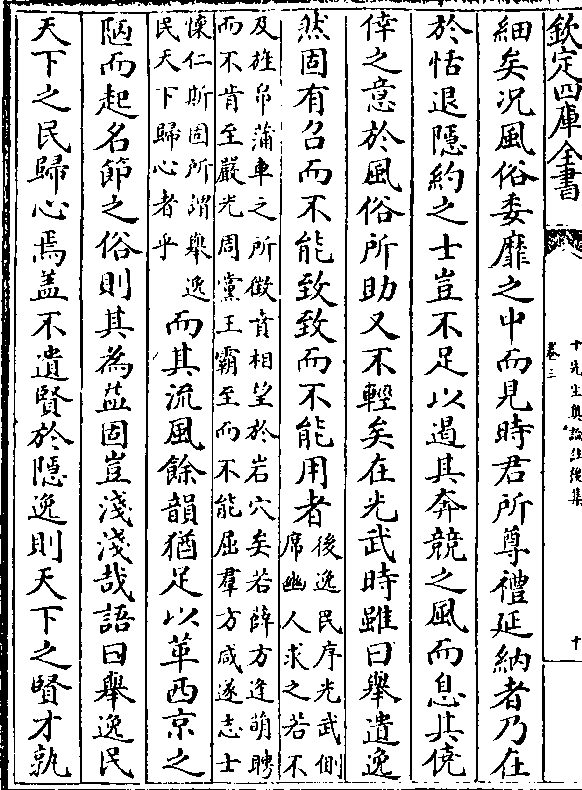 欽定四庫全書
十先生奧論註後集
卷三
十
細矣况風俗委靡之中而見時君所尊禮延納者乃在
於恬退隱約之士豈不足以遏其奔競之風而息其僥
倖之意於風俗所助又不輕矣在光武時雖曰舉遺逸
然固有召而不能致致而不能用者後逸民序光武側
席幽人求之若不
及旌帛蒲車之所徵賁相望於岩穴矣若薛方逢萌聘
而不肯至嚴光周黨王霸至而不能屈羣方咸遂志士
懐仁斯固所謂舉逸
民天下歸心者乎
而其流風餘韻猶足以革西京之
陋而起名節之俗則其為益固豈淺淺哉語曰舉逸民
天下之民歸心焉盖不遺賢於隱逸則天下之賢才孰